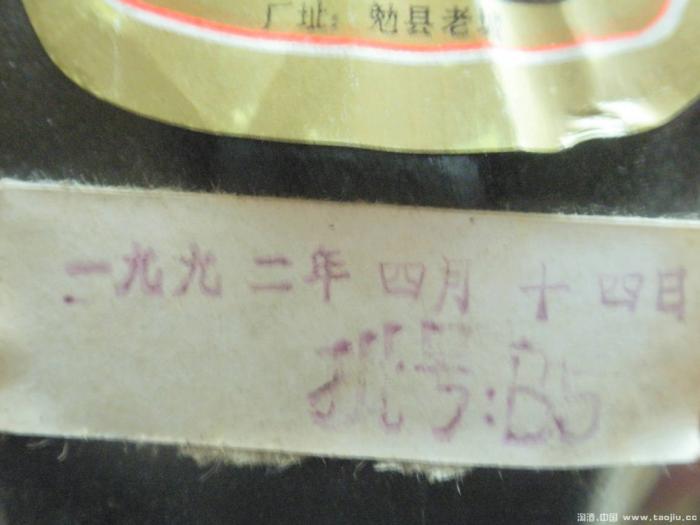 厂址：勉县老
一九九二年 四月 十四日
批号:B5
淘酒.中国 www.taojiu.cc